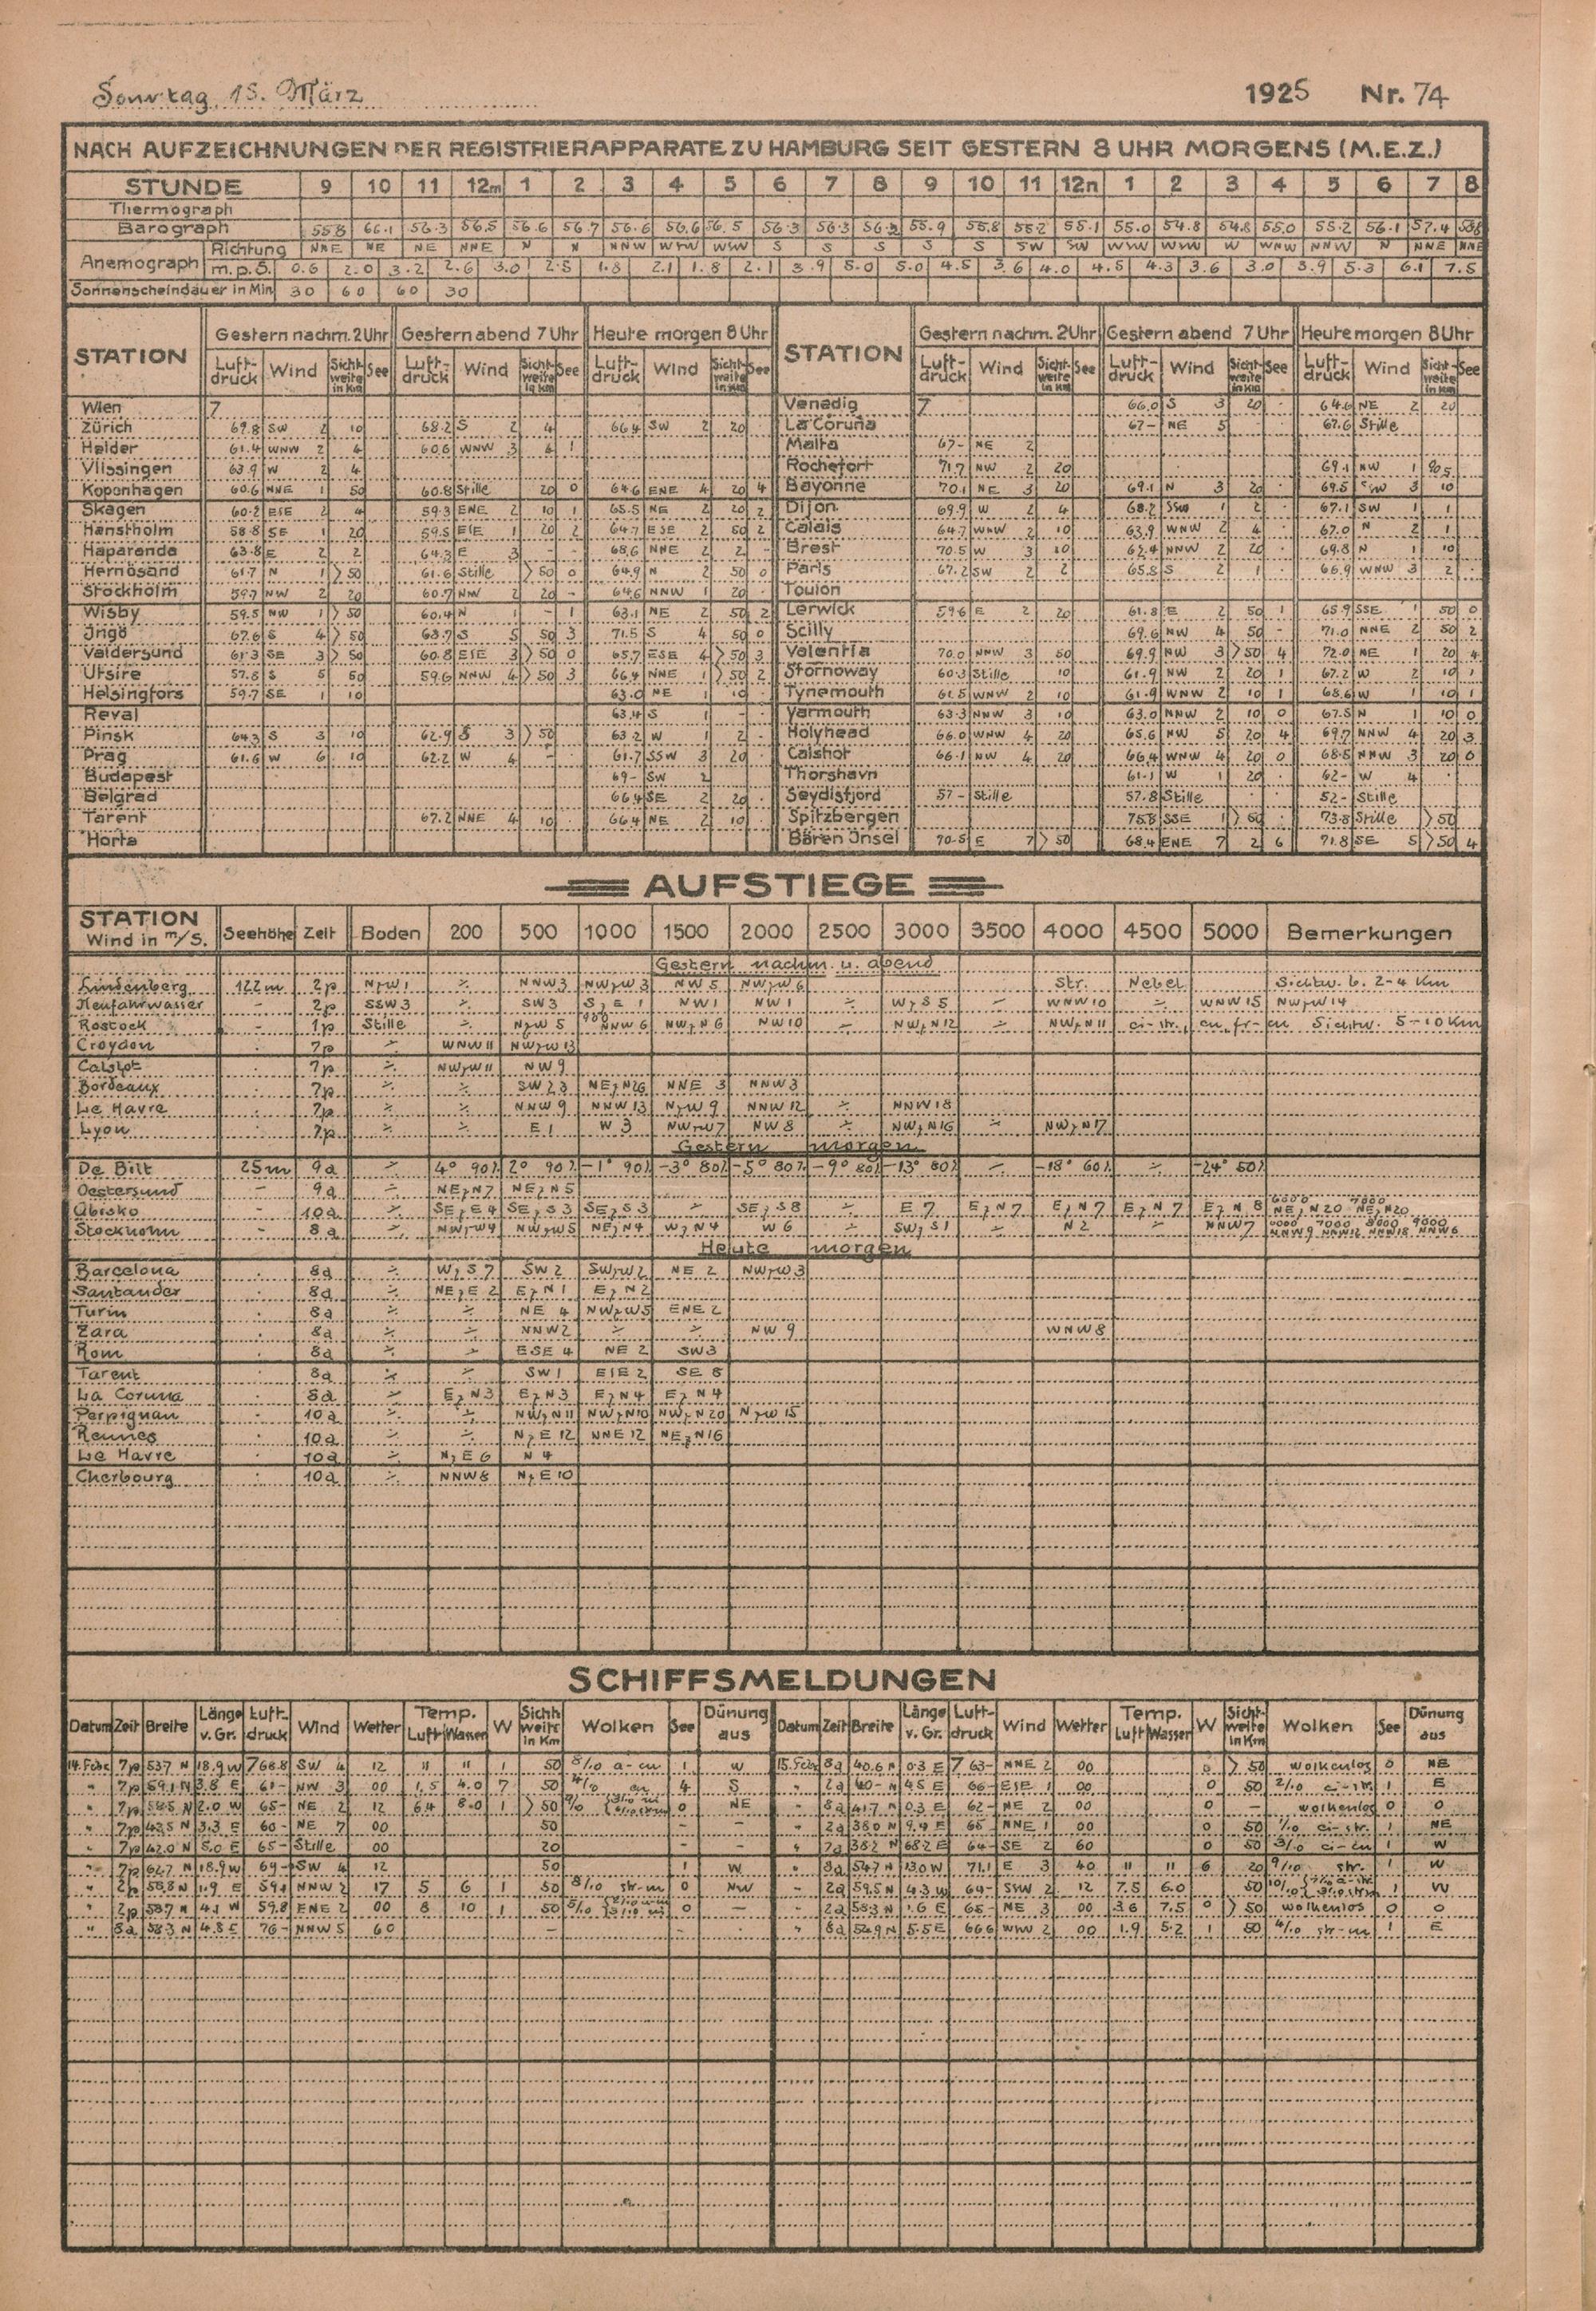 Sonntag, 15. März 1925 Nr. 74
NACH AUFZEICHNUNGEN DER REGISTRIERAPPARATE ZU HAMBURG SEIT GESTERN 8 UHR MORGENS (M.E.Z.)
STUNDE 9 10 11 12m 1 2 3 4 5 6 7 8 9 10 11 12n 1 2 3 4 5 6 7 8
Thermograph
Barograph 55.8 66.1 56.3 56.5 56.6 56.7 56.6 56.6 56.5 56.3 56.3 56.2 55.9 55.8 55.2 55.1 55.0 54.8 54.8 55.0 55.2 56.1 57.4
Anemograph Richtung NNE NE NE NNE N N NNW WSW S S S S S SW SW WSW WSW W WNW NNW N NNE NNE
m.p.S. 0.6 2.0 3.2 2.6 3.0 2.5 1.8 2.1 1.8 2.1 3.9 5.0 5.0 4.5 3.6 4.0 4.5 4.3 3.6 3.0 3.9 5.3 6.1 7.5
Sonnenscheindauer in Min. 30 60 60 30
STATION Gestern nachm. 2 Uhr Gestern abend 7 Uhr Heute morgen 8 Uhr STATION Gestern nachm. 2 Uhr Gestern abend 7 Uhr Heute morgen 8 Uhr
Luft-druck Wind Sicht-weite in Km See Luft-druck Wind Sicht-weite in Km See Luft-druck Wind Sicht-weite in Km See Luft-druck Wind Sicht-weite in Km See Luft-druck Wind Sicht-weite in Km See Luft-druck Wind Sicht-weite in Km See
Wien 7 Venedig 7 66.0 S 3 20 64.6 NE 2 20
Zürich 69.8 SW 2 10 68.2 S 2 4 66.4 SW 2 20 La Coruña 67- NE 5 67.6 Stille
Helder 61.4 WNW 2 4 60.6 WNW 3 4 1 Malta 67- NE 2
Vlissingen 63.9 W 2 4 Rochefort 71.7 NW 2 20 69.1 NW 1
Kopenhagen 60.6 NNE 1 50 60.8 Stille 20 0 64.6 ENE 4 20 4 Bayonne 70.1 NE 3 20 69.1 N 3 20 69.5 SSW 3 10
Skagen 60.2 ESE 2 4 59.3 ENE 2 10 1 65.5 NE 2 20 2 Dijon 69.9 W 2 4 68.2 SSW 1 2 67.1 SW 1 1
Hanstholm 58.8 SE 1 20 59.5 ESE 1 20 2 64.7 ESE 2 50 2 Calais 64.7 WNW 2 10 63.9 WNW 2 4 67.0 N 2 1
Haparanda 63.8 E 2 2 64.3 E 3 - - 68.6 NNE 2 2 - Brest 70.5 W 3 10 NNW 2 20 69.8 N 1 10
Hernösand 61.7 N 1 > 50 61.6 Stille > 50 0 64.9 N 2 50 0 Paris 67.2 SW 2 2 65.8 S 2 1 66.9 WNW 3 2
Stockholm 59.7 NW 2 20 60.7 NW 2 20 - 64.6 NNW 1 20 Toulon
Wisby 59.5 NW 1 > 50 60.4 N 1 - 1 63.1 NE 2 50 2 Lerwick 59.6 E 2 20 61.8 E 2 50 1 65.9 SSE 1 50 0
Ingö 67.6 S 4 > 50 63.7 S 5 50 3 71.5 S 4 50 0 Scilly 69.6 NW 4 50 - 71.0 NNE 2 50 2
Valdersund 61.3 SE 3 > 50 60.8 ESE 3 > 50 0 65.7 ESE 4 > 50 3 Valentia 70.0 NNW 3 50 69.9 NW 3 > 50 4 72.0 NE 1 20 4
Utsire 57.8 S 5 50 59.6 NNW 4 > 50 3 66.4 NNE 1 > 50 2 Stornoway 60.3 Stille 10 61.9 NW 2 20 1 67.2 W 2 10 1
Helsingfors 59.7 SE 1 10 63.0 NE 1 10 Tynemouth 61.5 WNW 2 10 61.9 WNW 2 10 1 68.6 W 1 10 1
Reval 63.4 S 1 - Yarmouth 63.3 NNW 3 10 63.0 NNW 2 10 0 67.5 N 1 10 0
Pinsk 64.3 S 3 10 62.9 S 3 > 50 63.2 W 1 2 Holyhead 66.0 WNW 4 20 65.6 NW 5 20 4 69.7 NNW 4 20 3
Prag 61.6 W 6 10 62.2 W 4 - 61.7 SSW 3 20 Calshot 66.1 NW 4 20 66.4 WNW 4 20 0 68.5 NNW 3 20 0
Budapest 69- SW 2 Thorshavn 61.1 W 1 20 62- W 4
Belgrad 66.4 SE 2 20 Seydisfjord 57- Stille 57.8 Stille 52- Stille
Tarent 67.2 NNE 4 10 66.4 NE 2 10 Spitzbergen 75.8 SSE 1 > 50 73.8 Stille > 50
Horta Bären Insel 70.5 E 7 > 50 68.4 ENE 7 2 6 71.8 SE 5 > 50 4
AUFSTIEGE
STATION Wind in m/s. Seehöhe Zeit Boden 200 500 1000 1500 2000 2500 3000 3500 4000 4500 5000 Bemerkungen
Gestern nachm. u. abend
Lindenberg 122m 2p NzW1 ÷ NNW3 NWzW3 NW5 NWzW6 Str. Nebel Sichtw. b. 2-4 Km
Neufahrwasser - 2p SSW3 ÷ SW3 SzE1 NW1 NW1 ÷ WzS5 WNW10 ÷ WNW15 NWzW14
Rostock - 1p Stille ÷ NzW5 NNW6 NWzN6 NW10 - NWzN12 ÷ NWzN11 ci-str., cu, fr-cu Sichtw. 5-10 Km
Croydon 7p ÷ WNW11 NWzW13
Calshot 7p ÷ NWzW11 NW9
Bordeaux 7p ÷ ÷ SW23 NEzN26 NNE3 NNW3
Le Havre 7p ÷ ÷ NNW9 NNW13 NzW9 NNW12 ÷ NNW18
Lyon 7p ÷ ÷ E1 W3 NWzW7 NW8 ÷ NWzN16 ÷ NWzN17
Gestern morgen
De Bilt 25m 9a ÷ 4° 90% 2° 90% -1° 90% -3° 80% -5° 80% -9° 80% -13° 80% - -18° 60% ÷ -24° 50%
Oestersund - 9a ÷ NEzN7 NEzN5
Abisko - 10a ÷ SEzE4 SEzS3 SEzS3 ÷ SEzS8 ÷ E7 EzN7 EzN7 EzN7 EzN8 6000 NEzN20 7000 NEzN20
Stockholm - 8a ÷ NWzW4 NWzW5 NEzN4 WzN4 W6 ÷ SWzS1 ÷ N2 ÷ NNW7 6000 NNW9 7000 NNW12 8000 NNW18 9000 NNW6
Heute morgen
Barcelona 8a ÷ WzS7 SW2 SWzW2 NE2 NWzW3
Santander 8a ÷ NEzE2 EzN1 EzN2
Turin 8a ÷ ÷ NE4 NWzW5 ENE2
Zara 8a ÷ ÷ NNW2 ÷ ÷ NW9 WNW8
Rom 8a ÷ ÷ ESE4 NE2 SW3
Tarent 8a ÷ ÷ SW1 ESE2 SE8
La Coruna 8a ÷ EzN3 EzN3 EzN4 EzN4
Perpignan 10a ÷ ÷ NWzN11 NWzN10 NWzN20 NzW15
Rennes 10a ÷ ÷ NzE12 NNE12 NEzN16
Le Havre 10a ÷ NzE6 N4
Cherbourg 10a ÷ NNW8 NzE10
SCHIFFSMELDUNGEN
Datum Zeit Breite Länge v. Gr. Luft-druck Wind Wetter Temp. Luft Wasser W Sicht-weite in Km Wolken See Dünung aus Datum Zeit Breite Länge v. Gr. Luft-druck Wind Wetter Temp. Luft Wasser W Sicht-weite in Km Wolken See Dünung aus
14. Febr. 7p 53.7 N 18.9 W 768.8 SW 4 12 11 11 1 50 8/10 a-cu 1 W 15. Febr. 8a 40.6 N 0.3 E 763- NNE 2 00 0 > 50 wolkenlos 0 NE
" 7p 59.1 N 3.8 E 61- NW 3 00 1.5 4.0 7 50 4/10 cu 4 S " 2a 40- N 4.5 E 66- ESE 1 00 0 50 2/10 ci-str. 1 E
" 7p 58.5 N 2.0 W 65- NE 2 12 6.4 8.0 1 > 50 0 NE " 8a 41.7 N 0.3 E 62- NE 2 00 0 - wolkenlos 0 0
" 7p 43.5 N 3.3 E 60- NE 7 00 50 - - " 2a 38.0 N 9.4 E 65- NNE 1 00 0 50 1/10 ci-str. 1 NE
" 7p 42.0 N 5.0 E 65- Stille 00 20 - - " 7a 38.2 N 68.2 E 64- SE 2 60 0 50 3/10 ci-cu 1 W
" 7p 62.7 N 18.9 W 69- SW 4 12 50 1 W " 8a 54.7 N 13.0 W 71.1 E 3 40 11 11 6 20 9/10 str. 1 W
" 2p 58.8 N 1.9 E 59.1 NNW 2 17 5 6 1 50 8/10 str-m 0 NW " 2a 59.5 N 4.3 W 64- SSW 2 12 7.5 6.0 50 1 W
" 2p 58.7 N 4.1 W 59.8 ENE 2 00 8 10 1 50 0 - " 2a 58.3 N 1.6 E 65- NE 3 00 3.6 7.5 0 > 50 wolkenlos 0 0
" 8a 58.3 N 4.8 E 76- NNW 5 60 - - " 8a 54.9 N 5.5 E 66.6 WNW 2 00 1.9 5.2 1 50 4/10 str-m 1 E